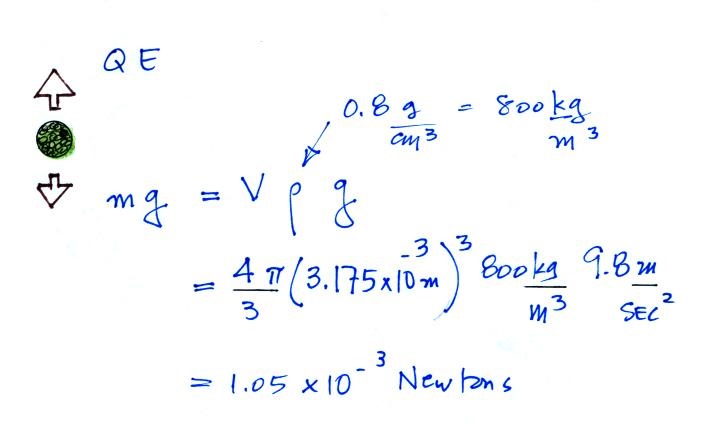 QE
0.8 g/cm³ = 800 kg/m³
mg = V ρ g
= 4/3 π (3.175 x 10⁻³ m)³ 800 kg/m³ 9.8 m/SEC²
= 1.05 x 10⁻³ Newtons